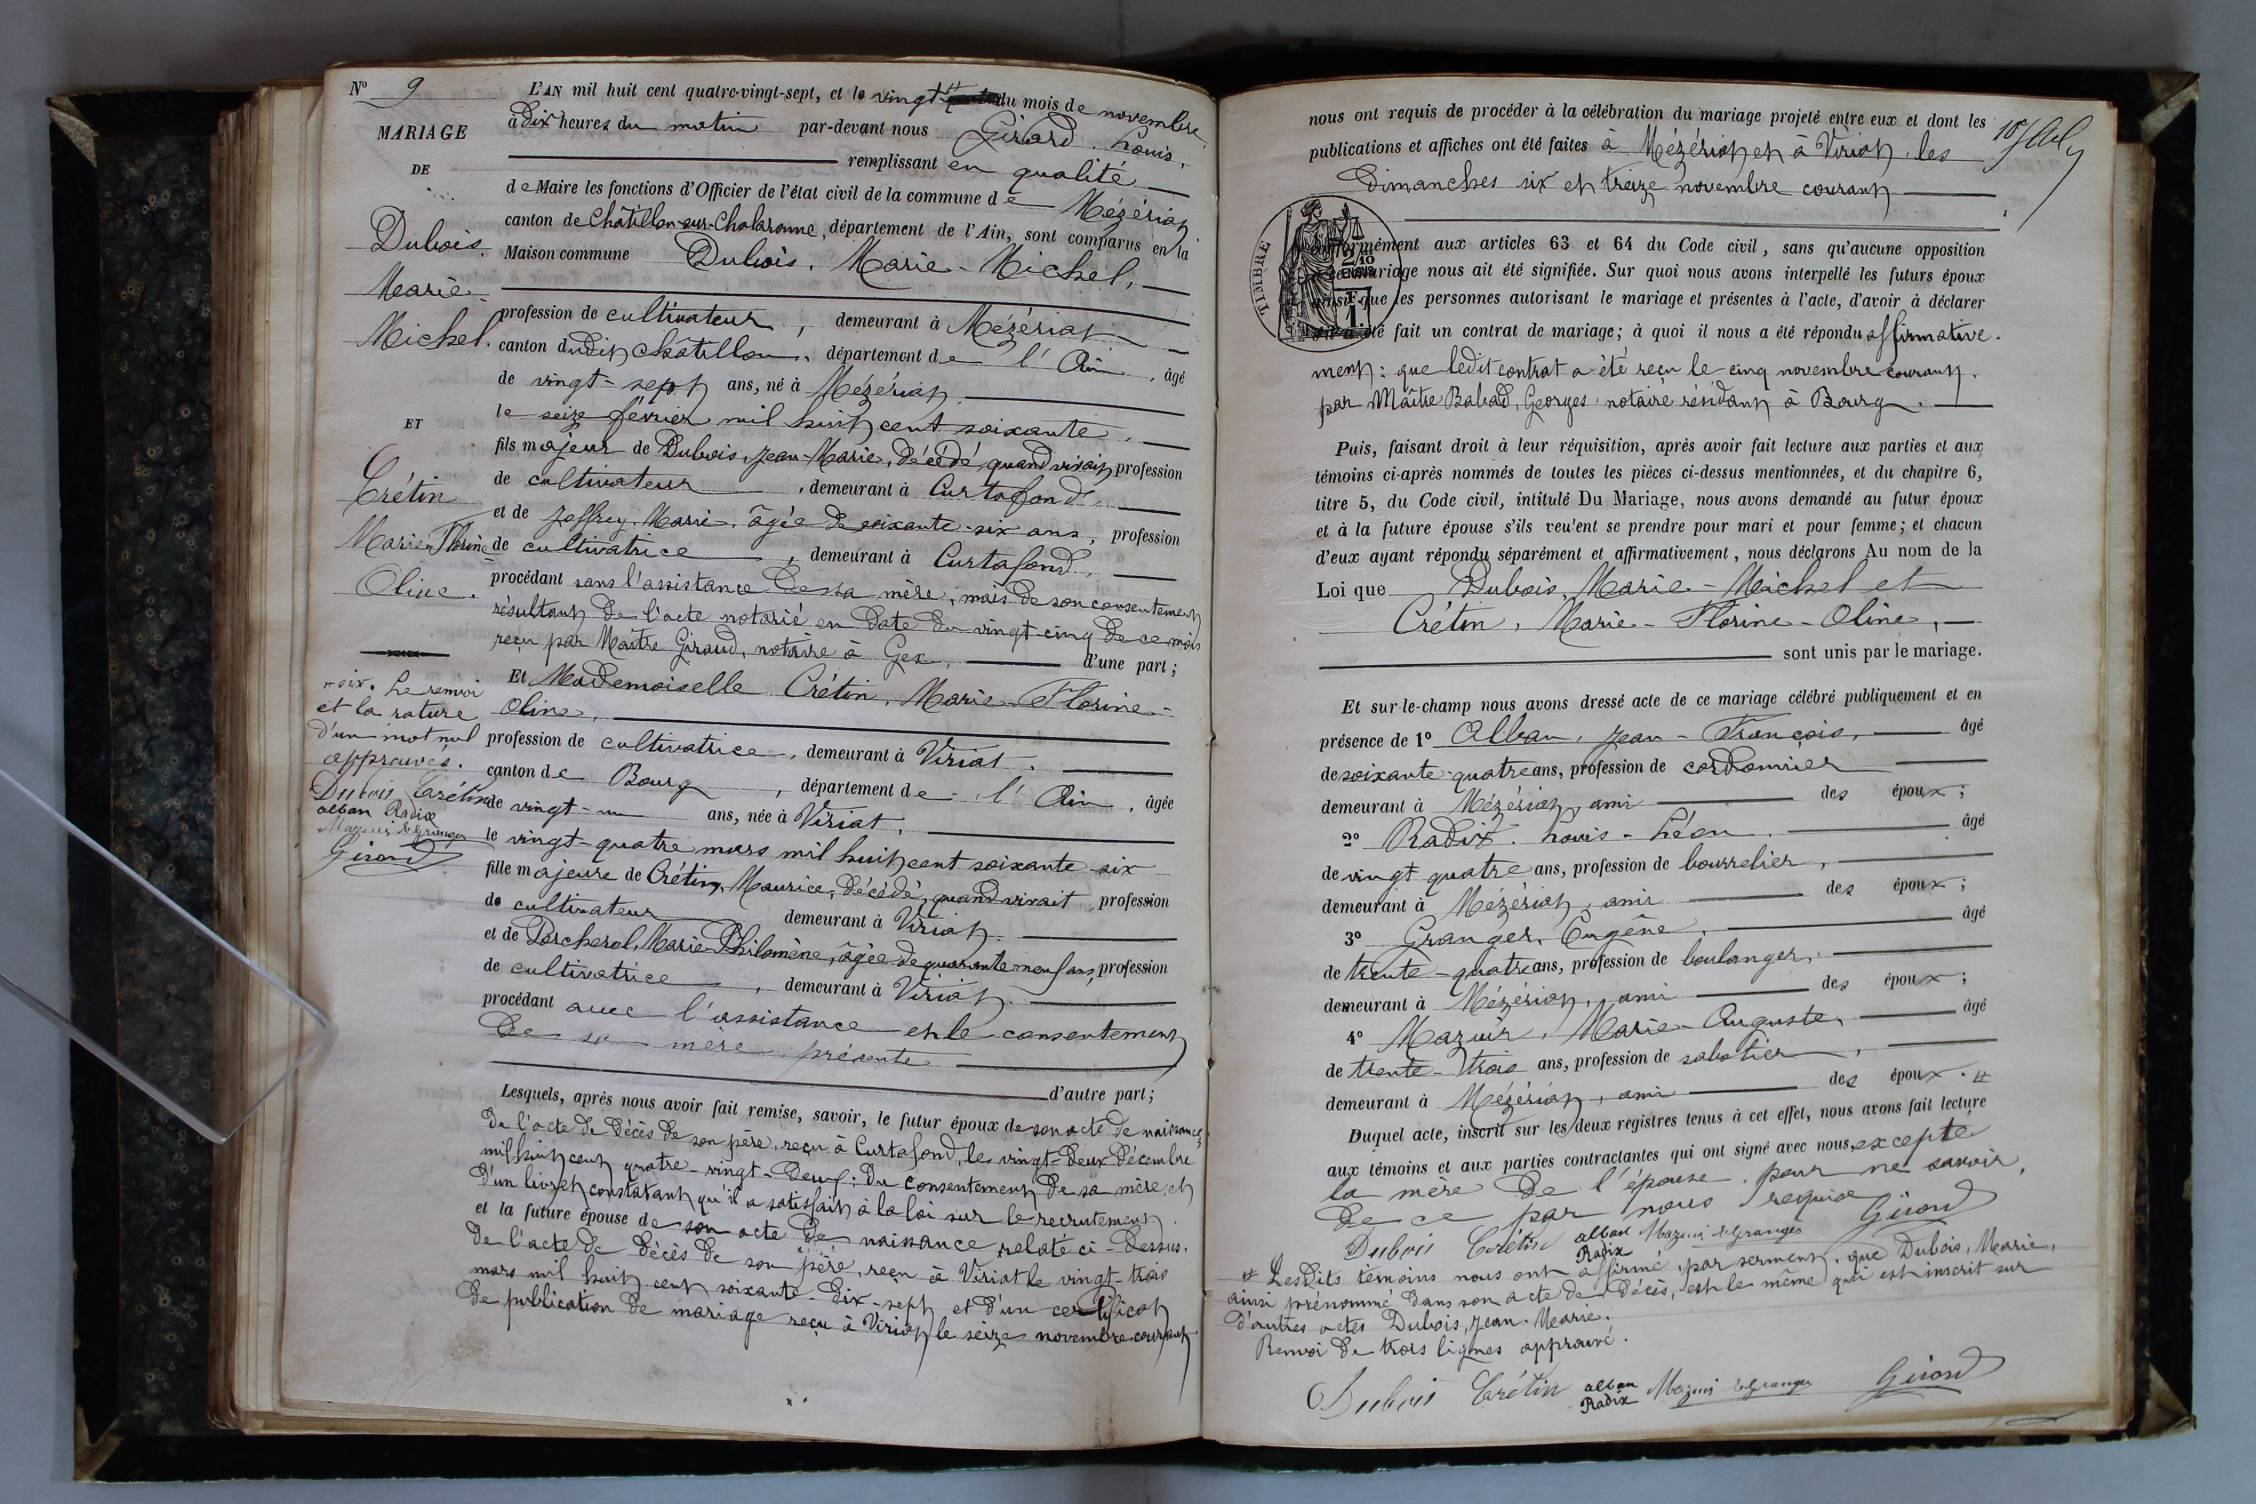 N° 9
MARIAGE
DE
Dubois.
Marie-
Michel.
ET
Crétin
Marie-Florine-
Oline.
" six. Le renvoi
et la rature
d'un mot nul
approuvés.
Dubois Crétin
alban Radix
Mazuir E Granger
Girard
L'AN mil huit cent quatre-vingt-sept, et le vingt " du mois de novembre
à dix heures du matin par-devant nous Girard. Louis.
remplissant en qualité
de Maire les fonctions d'Officier de l'état civil de la commune de Mézériat
canton de Châtillon-sur-Chalaronne, département de l'Ain, sont comparus en la
Maison commune Dubois. Marie-Michel,
profession de cultivateur, demeurant à Mézériat
canton dudit Châtillon, département de l'Ain, âgé
de vingt-sept ans, né à Mézériat.
le seize février mil huit cent soixante.
fils majeur de Dubois, Jean-Marie, décédé, quand vivait profession
de cultivateur, demeurant à Curtafond.
et de Joffrey. Marie. âgée de soixante-six ans, profession
de cultivatrice, demeurant à Curtafond,
procédant sans l'assistance de sa mère, mais de son consentement
résultant de l'acte notarié en date du vingt-cinq de ce mois
reçu par Maître Giraud, notaire à Gex, d'une part;
Et Mademoiselle Crétin, Marie-Florine-
Oline,
profession de cultivatrice, demeurant à Viriat.
canton de Bourg, département de l'Ain, âgée
de vingt-un ans, née à Viriat,
le vingt-quatre mars mil huit cent soixante-six
fille majeure de Crétin, Maurice, décédé, quand vivait profession
de cultivateur demeurant à Viriat.
et de Porcherel, Marie-Philomène, âgée de quarante-neuf ans, profession
de cultivatrice, demeurant à Viriat.
procédant avec l'assistance et le consentement
de sa mère présente
d'autre part;
Lesquels, après nous avoir fait remise, savoir, le futur époux de son acte de naissance;
de l'acte de décès de son père, reçu à Curtafond, le vingt-deux décembre
mil huit cent quatre-vingt-deux; du consentement de sa mère; et
d'un livret constatant qu'il a satisfait à la loi sur le recrutement.
et la future épouse de son acte de naissance relaté ci-dessus.
de l'acte de décès de son père, reçu à Viriat le vingt-trois
mars mil huit cent soixante-dix-sept et d'un certificat
de publication de mariage reçu à Viriat le seize novembre courant.
nous ont requis de procéder à la célébration du mariage projeté entre eux et dont les
publications et affiches ont été faites à Mézériat et à Viriat les
dimanches six et treize novembre courant
TIMBRE
2/10
EN SUS
1F.
conformément aux articles 63 et 64 du Code civil, sans qu'aucune opposition
à ce mariage nous ait été signifiée. Sur quoi nous avons interpellé les futurs époux
ainsi que les personnes autorisant le mariage et présentes à l'acte, d'avoir à déclarer
s'il a été fait un contrat de mariage; à quoi il nous a été répondu affirmative-
ment: que ledit contrat a été reçu le cinq novembre courant.
par Maître Babad, Georges notaire résidant à Bourg.
Puis, faisant droit à leur réquisition, après avoir fait lecture aux parties et aux
témoins ci-après nommés de toutes les pièces ci-dessus mentionnées, et du chapitre 6,
titre 5, du Code civil, intitulé Du Mariage, nous avons demandé au futur époux
et à la future épouse s'ils veu'ent se prendre pour mari et pour femme; et chacun
d'eux ayant répondu séparément et affirmativement, nous déclarons Au nom de la
Loi que Dubois, Marie-Michel et
Crétin, Marie-Florine-Oline,
sont unis par le mariage.
Et sur-le-champ nous avons dressé acte de ce mariage célébré publiquement et en
présence de 1° Alban, Jean-François, âgé
de soixante-quatre ans, profession de cordonnier
demeurant à Mézériat, ami des époux;
2° Radix. Louis-Léon. âgé
de vingt quatre ans, profession de bourrelier,
demeurant à Mézériat, ami des époux;
3° Granger, Eugène, âgé
de trente-quatre ans, profession de boulanger,
demeurant à Mézériat, ami des époux;
4° Mazuir, Marie-Auguste, âgé
de trente-trois ans, profession de sabotier,
demeurant à Mézériat, ami des époux. #
Duquel acte, inscrit sur les deux registres tenus à cet effet, nous avons fait lecture
aux témoins et aux parties contractantes qui ont signé avec nous, excepté
la mère de l'épouse. pour ne savoir,
de ce par nous requise
Dubois Crétin alban Mazuir E Granger Girard
Radix
# Lesdits témoins nous ont affirmé, par serment, que Dubois, Marie,
ainsi prénommé dans son acte de décès, est le même qui est inscrit sur
d'autres actes Dubois, Jean-Marie.
Renvoi de trois lignes approuvé.
Dubois Crétin alban Mazuir E Granger Girard
Radix